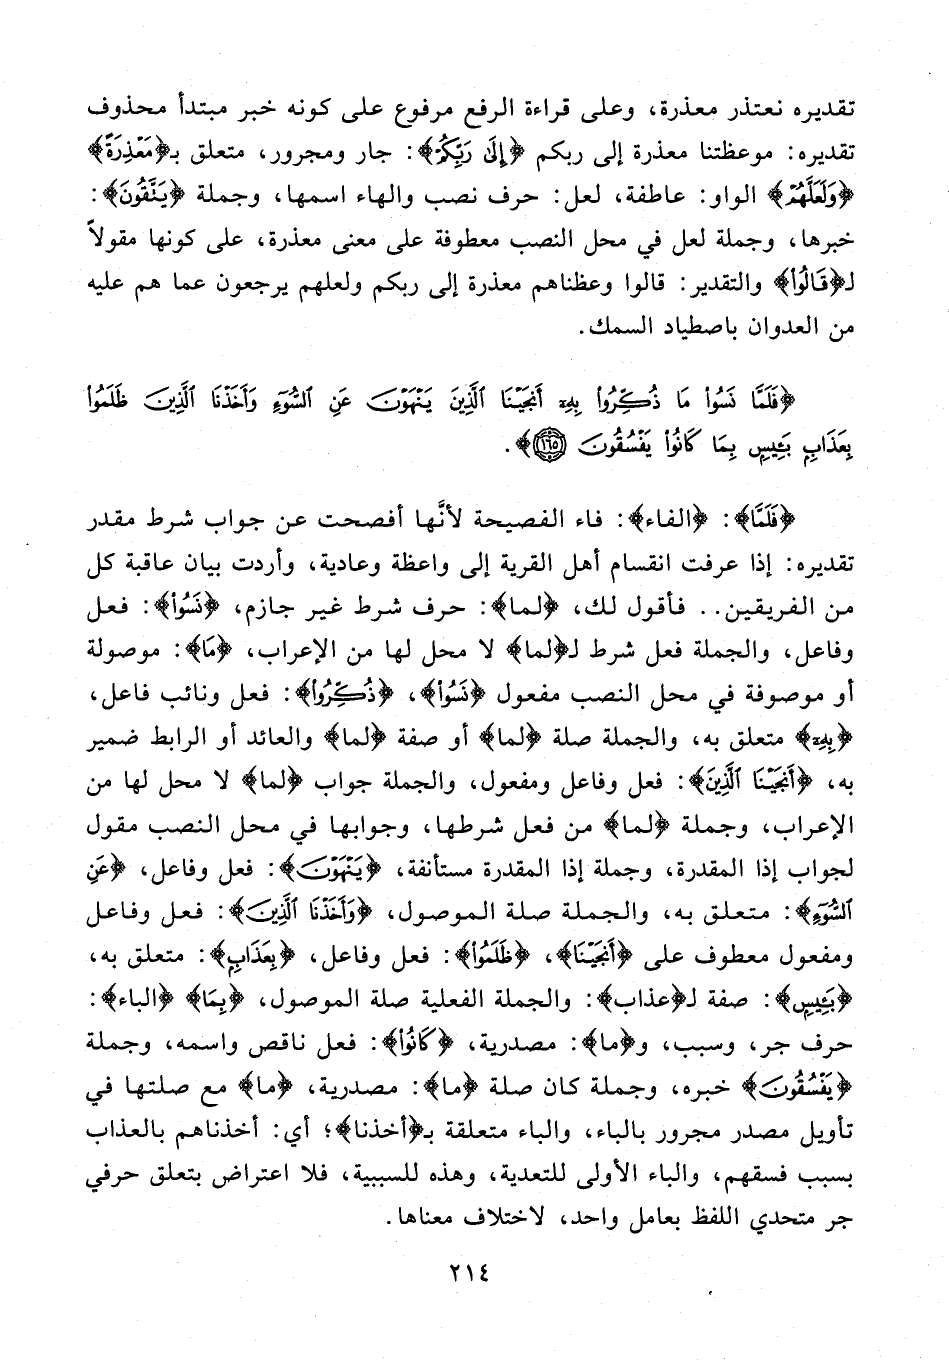 تقديره نعتذر معذرة، وعلى قراءة الرفع مرفوع على كونه خبر مبتدأ محذوف
تقديره: موعظتنا معذرة إلى ربكم ﴿إِلَىٰ رَبِّكُمْ﴾: جار ومجرور، متعلق بـ﴿مَعْذِرَةً﴾
﴿وَلَعَلَّهُمْ﴾ الواو: عاطفة، لعل: حرف نصب والهاء اسمها، وجملة ﴿يَتَّقُونَ﴾:
خبرها، وجملة لعل في محل النصب معطوفة على معنى معذرة، على كونها مقولاً
لـ﴿قَالُوا﴾ والتقدير: قالوا وعظناهم معذرة إلى ربكم ولعلهم يرجعون عما هم عليه
من العدوان باصطياد السمك.
﴿فَلَمَّا نَسُوا۟ مَا ذُكِّرُوا۟ بِهِۦٓ أَنجَيْنَا ٱلَّذِينَ يَنْهَوْنَ عَنِ ٱلسُّوٓءِ وَأَخَذْنَا ٱلَّذِينَ ظَلَمُوا۟
بِعَذَابٍۭ بَـِٔيسٍۭ بِمَا كَانُوا۟ يَفْسُقُونَ ١٦٥﴾.
﴿فَلَمَّا﴾: ﴿الفاء﴾: فاء الفصيحة لأنَّها أفصحت عن جواب شرط مقدر
تقديره: إذا عرفت انقسام أهل القرية إلى واعظة وعادية، وأردت بيان عاقبة كل
من الفريقين.. فأقول لك، ﴿لما﴾: حرف شرط غير جازم، ﴿نَسُوا۟﴾: فعل
وفاعل، والجملة فعل شرط لـ﴿لما﴾ لا محل لها من الإعراب، ﴿مَا﴾: موصولة
أو موصوفة في محل النصب مفعول ﴿نَسُوا۟﴾، ﴿ذُكِّرُوا۟﴾: فعل ونائب فاعل،
﴿بِهِۦٓ﴾ متعلق به، والجملة صلة ﴿لما﴾ أو صفة ﴿لما﴾ والعائد أو الرابط ضمير
به، ﴿أَنجَيْنَا ٱلَّذِينَ﴾: فعل وفاعل ومفعول، والجملة جواب ﴿لما﴾ لا محل لها من
الإعراب، وجملة ﴿لما﴾ من فعل شرطها، وجوابها في محل النصب مقول
لجواب إذا المقدرة، وجملة إذا المقدرة مستأنفة، ﴿يَنْهَوْنَ﴾: فعل وفاعل، ﴿عَنِ
ٱلسُّوٓءِ﴾: متعلق به، والجملة صلة الموصول، ﴿وَأَخَذْنَا ٱلَّذِينَ﴾: فعل وفاعل
ومفعول معطوف على ﴿أَنجَيْنَا﴾، ﴿ظَلَمُوا۟﴾: فعل وفاعل، ﴿بِعَذَابٍۭ﴾: متعلق به،
﴿بَـِٔيسٍۭ﴾: صفة لـ﴿عذاب﴾: والجملة الفعلية صلة الموصول، ﴿بِمَا﴾ ﴿الباء﴾:
حرف جر، وسبب، و﴿ما﴾: مصدرية، ﴿كَانُوا۟﴾: فعل ناقص واسمه، وجملة
﴿يَفْسُقُونَ﴾ خبره، وجملة كان صلة ﴿ما﴾: مصدرية، ﴿ما﴾ مع صلتها في
تأويل مصدر مجرور بالباء، والباء متعلقة بـ﴿أخذنا﴾؛ أي: أخذناهم بالعذاب
بسبب فسقهم، والباء الأولى للتعدية، وهذه للسببية، فلا اعتراض بتعلق حرفي
جر متحدي اللفظ بعامل واحد، لاختلاف معناها.
٢١٤